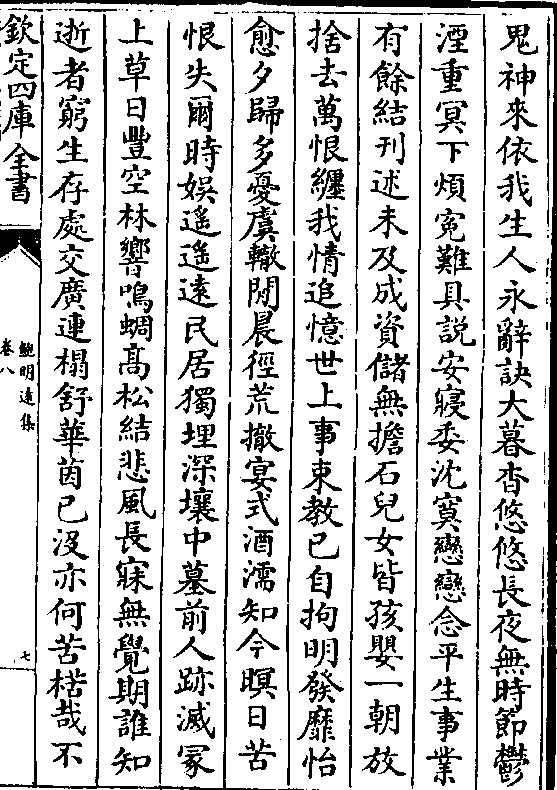 鬼神來依我生人永辭訣大暮杳悠悠長夜無時節鬱
湮重冥下煩寃難具説安寢委沈寞戀戀念平生事業
有餘結刋述未及成資儲無擔石兒女皆孩嬰一朝放
捨去萬恨纒我情追憶世上事束教已自拘明發靡怡
愈夕歸多憂虞轍閒晨徑荒撤宴式酒濡知今瞑日苦
恨失爾時娯遥遥逺民居獨埋深壤中墓前人跡滅冢
上草日豐空林響鳴蜩髙松結悲風長寐無覺期誰知
逝者窮生存處交廣連榻舒華茵已沒亦何苦楛哉不
欽定四庫全書
鮑明逺集
卷八
七